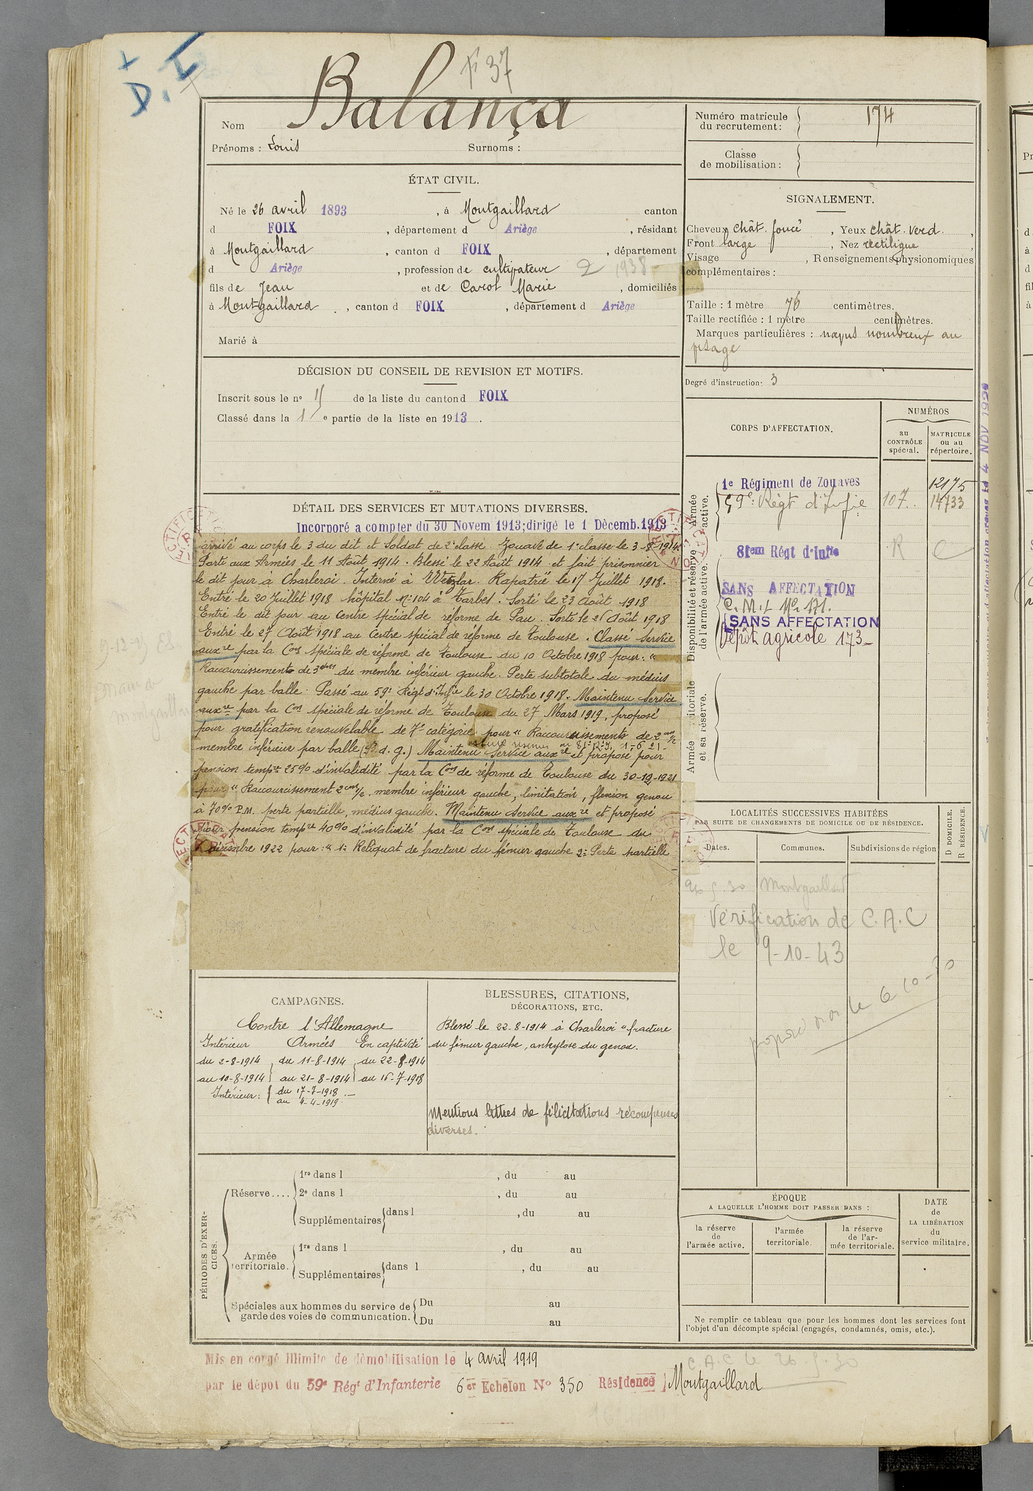 +
D. I
F 37
Nom Balança
Prénoms : Louis Surnoms :
Numéro matricule
du recrutement : 174
Classe
de mobilisation :
ÉTAT CIVIL.
Né le 26 avril 1893 , à Montgaillard canton
d FOIX , département d Ariège , résidant
à Montgaillard , canton d FOIX , département
d Ariège , profession de cultivateur 2 1938
fils de Jean et de Carol Marie , domiciliés
à Montgaillard , canton d FOIX , département d Ariège
Marié à
SIGNALEMENT.
Cheveux chât. foncé , Yeux chât. verd. ,
Front large , Nez rectiligne ,
Visage , Renseignements physionomiques
complémentaires :
Taille : 1 mètre 76 centimètres.
Taille rectifiée : 1 mètre centimètres.
Marques particulières : nævus nombreux au
visage
Degré d'instruction : 3
DÉCISION DU CONSEIL DE REVISION ET MOTIFS.
Inscrit sous le n° de la liste du canton d FOIX
Classé dans la 1 e partie de la liste en 1913 .
CORPS D'AFFECTATION.
NUMÉROS
au
CONTRÔLE
spécial.
MATRICULE
ou au
répertoire.
Armée
active.
1e Régiment de Zouaves 12175
59e Régt d'Infie 107 14733
Disponibilité et réserve
de l'armée active.
81em Régt d'Infie R C
SANS AFFECTATION
C.M.I. N° 171.
SANS AFFECTATION
Dépôt agricole 173
Armée territoriale
et sa réserve.
DÉTAIL DES SERVICES ET MUTATIONS DIVERSES.
Incorporé a compter du 30 Novem 1913;dirigé le 1 Décemb.1913
arrivé au corps le 3 du dit et Soldat de 2e classe. Zouave de 1e classe le 3-8-1914
Parti aux Armées le 11 Août 1914. Blessé le 22 Août 1914 et fait prisonnier
le dit jour à Charleroi. Interné à Wetzlar. Rapatrié le 17 Juillet 1918.
Entré le 20 Juillet 1918 hôpital N° 104 à Tarbes. Sorti le 23 Août 1918
Entré le dit jour au centre spécial de réforme de Pau. Sorti le 26 Août 1918
Entré le 27 Août 1918 au Centre spécial de réforme de Toulouse. Classé Service
auxre par la Con Spéciale de réforme de Toulouse du 10 Octobre 1918 pour : "
Raccourcissement de du membre inférieur gauche. Perte subtotale du médius
gauche par balle. Passé au 59e Régt d'Infie le 30 Octobre 1918. Maintenu Service
auxre par la Con spéciale de réforme de Toulouse du 27 Mars 1919, proposé
pour gratification renouvelable de 7e catégorie pour " Raccourcissements de 2
membre inférieur par balle (S.d.g.) Maintenu Service auxre et proposé pour
pension tempre 25% d'invalidité par la Con de réforme de Toulouse du 30-12-1921
pour " Raccourcissement 2 membre inférieur gauche, limitation, flexion genou
à 70% P.M. perte partielle, médius gauche. Maintenu Service auxre et proposé
pour pension tempre 40% d'invalidité par la Con spéciale de Toulouse du
décembre 1922 pour : " 1: Reliquat de fracture du fémur gauche 2: Perte partielle
LOCALITÉS SUCCESSIVES HABITÉES
PAR SUITE DE CHANGEMENTS DE DOMICILE OU DE RÉSIDENCE.
Dates. Communes. Subdivisions de région
D DOMICILE.
R RÉSIDENCE.
Montgaillard
Vérification de C.A.C
le 9-10-43
CAMPAGNES.
Contre l'Allemagne
Intérieur Armées En captivité
du 2-8-1914 du 11-8-1914 du 22-8-1914
au 10-8-1914 au 21-8-1914 au 16-7-1918
Intérieur : du 17-7-1918
au 4-4-1919
BLESSURES, CITATIONS,
DÉCORATIONS, ETC.
Blessé le 22-8-1914 à Charleroi "fracture
du fémur gauche, ankylose du genou.
Mentions lettres de félicitations récompenses
diverses.
PÉRIODES D'EXERCICES.
Réserve....
1re dans l , du au
2e dans l , du au
Supplémentaires dans l , du au
Armée
territoriale.
1re dans l , du au
Supplémentaires dans l , du au
Spéciales aux hommes du service de
garde des voies de communication.
Du au
Du au
ÉPOQUE
A LAQUELLE L'HOMME DOIT PASSER DANS :
la réserve
de
l'armée active.
l'armée
territoriale.
la réserve
de l'ar-
mée territoriale.
DATE
de
LA LIBÉRATION
du
service militaire.
Ne remplir ce tableau que pour les hommes dont les services font
l'objet d'un décompte spécial (engagés, condamnés, omis, etc.).
Mis en congé illimité de démobilisation le 4 avril 1919
par le dépôt du 59e Régt d'Infanterie 6er Echelon N° 350 Résidence Montgaillard